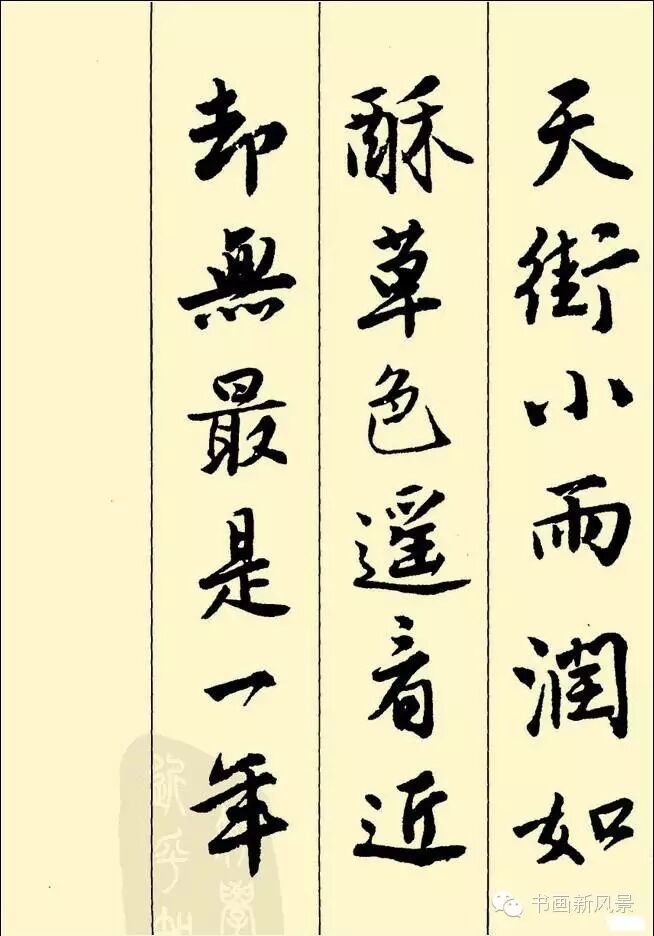 天街小雨潤如
酥草色遥看近
却無最是一年
书画新风景